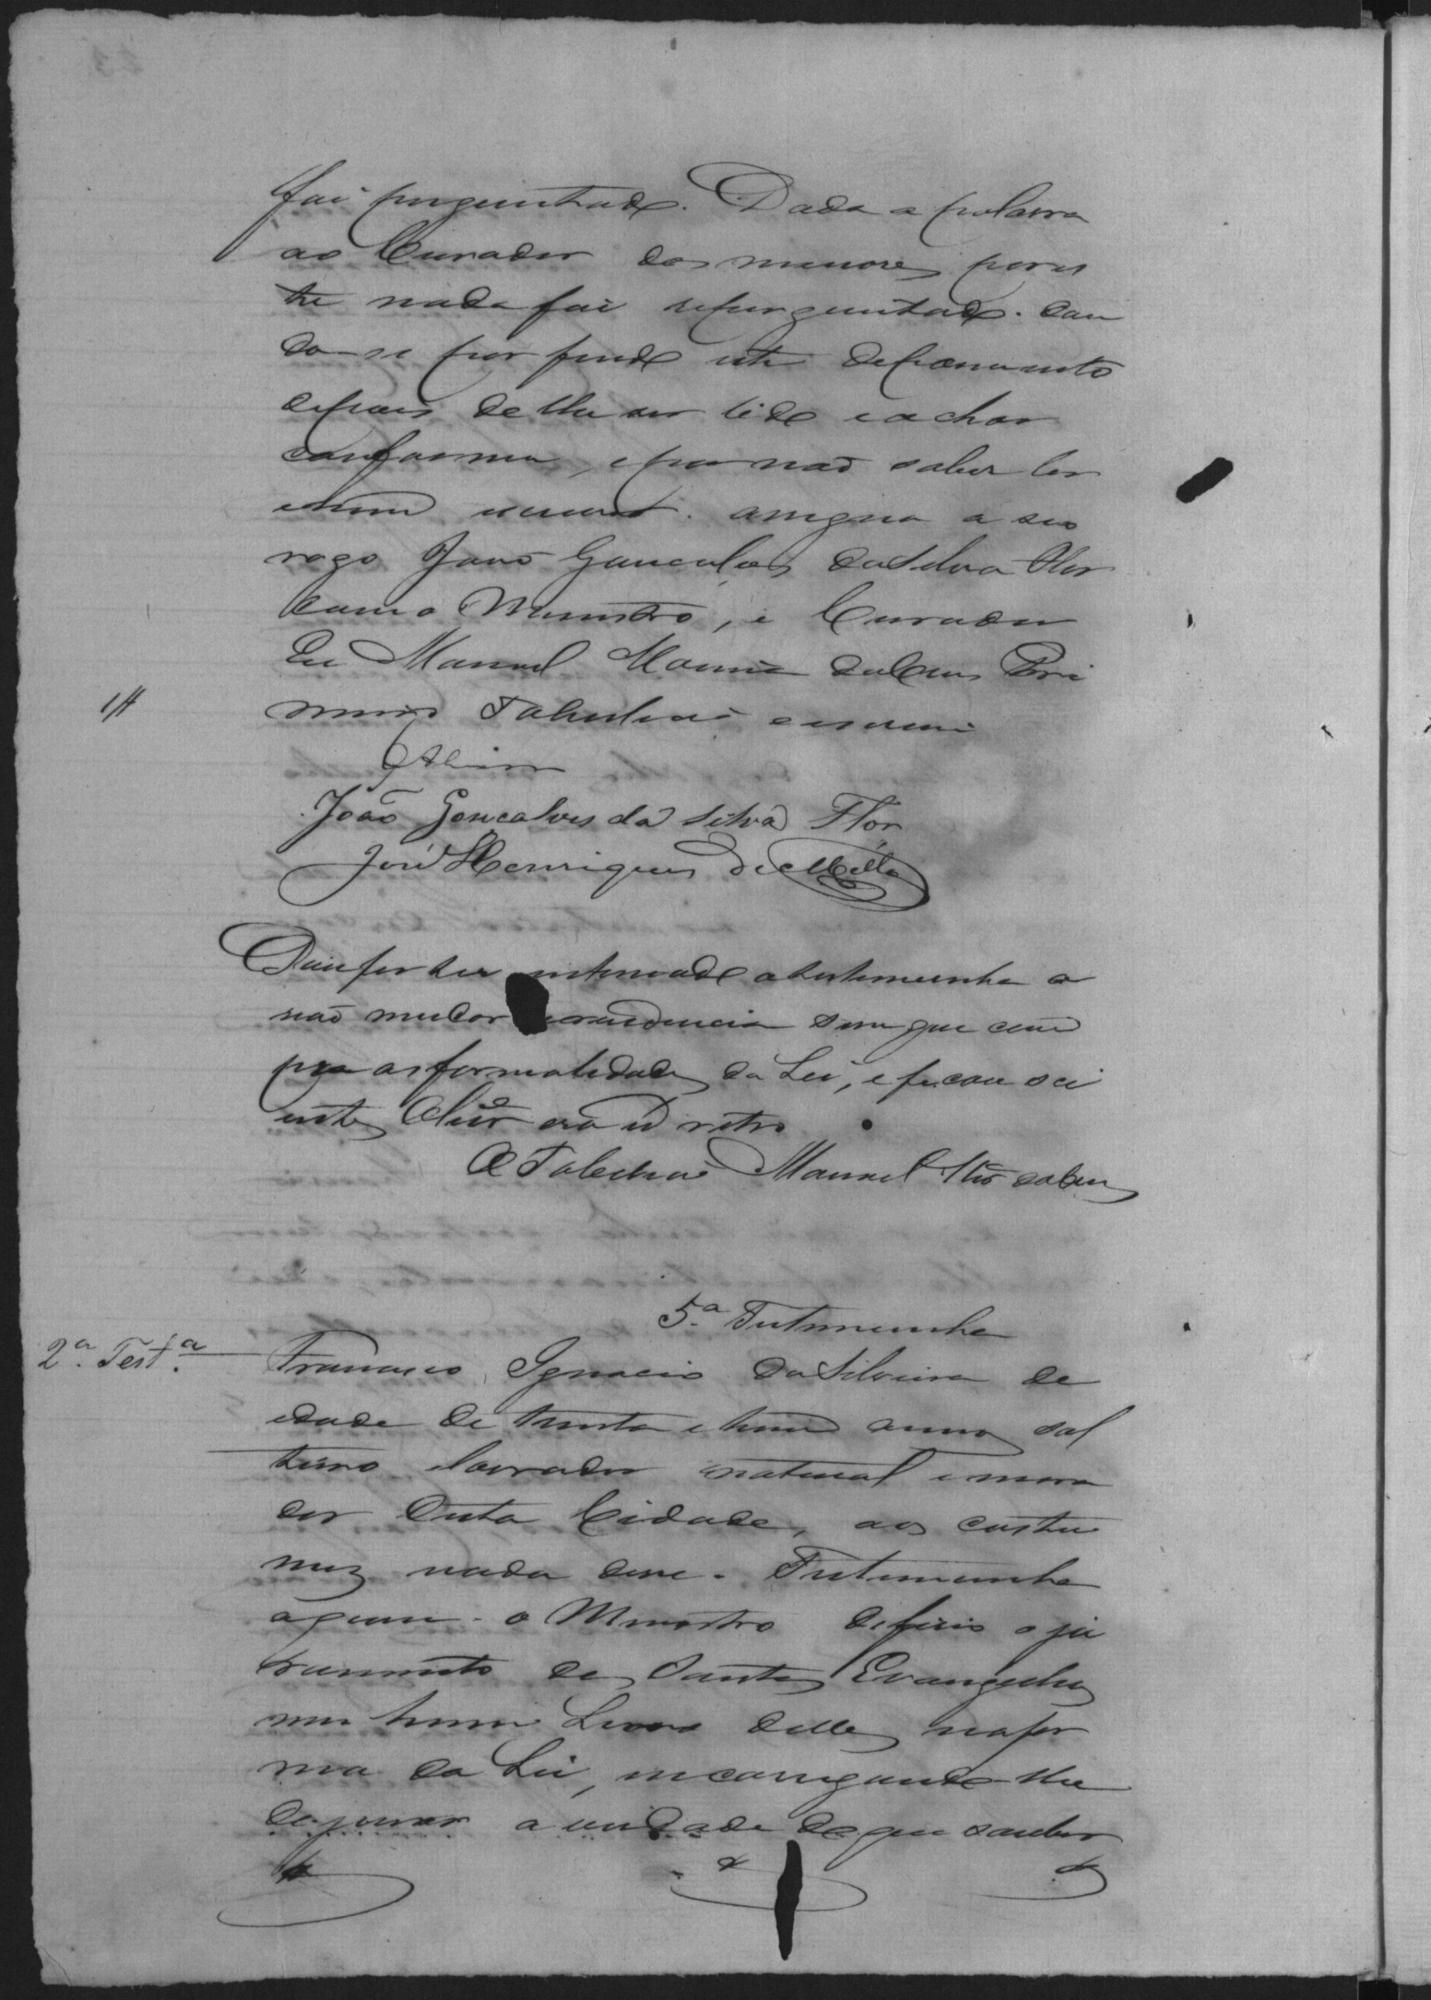 foi perguntado. Dada a palavra
ao Curador dos menores por es
te nada foi reperguntado. dan
do-se por findo este depoimento
depois de lhe ser lido e achar
conforme, e por não saber ler
e nem escrever. assigna a seu
rogo João Gonçalves da Silva Flor
com o Ministro, e Curador
Eu Manoel Pri
meiro Tabellião escrevi
João Gonçalves da Silva Flor
José Henriques de Mello
Dou fé ter intimado a testemunha a
não mudar residencia sem que cum
pra as formalidades da Lei, e ficou sci
ente era ut retro
O Tabellião Manoel
5.ª Testemunha
2.ª Test.ª
Francisco Ignacio da Silveira de
edade de trinta e hum annos sol
teiro lavrador natural e mora
dor desta Cidade, aos costu
mes nada disse. Testemunha
a quem o Ministro deferio o ju
ramento dos Santos Evangelhos
em hum Livro delles na for
ma da Lei, encarregando-lhe
de jurar a verdade do que souber